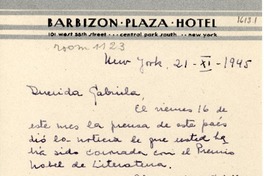 BARBIZON-PLAZA-HOTEL
101 west 58th street ... central park south ... new york
room 1123
New York, 21-XI-1945
Querida Gabriela,
El viernes 16 de
este mes la prensa de este país
dió la noticia de que usted ha-
bía sido coronada con el Premio
Nobel de Literatura.